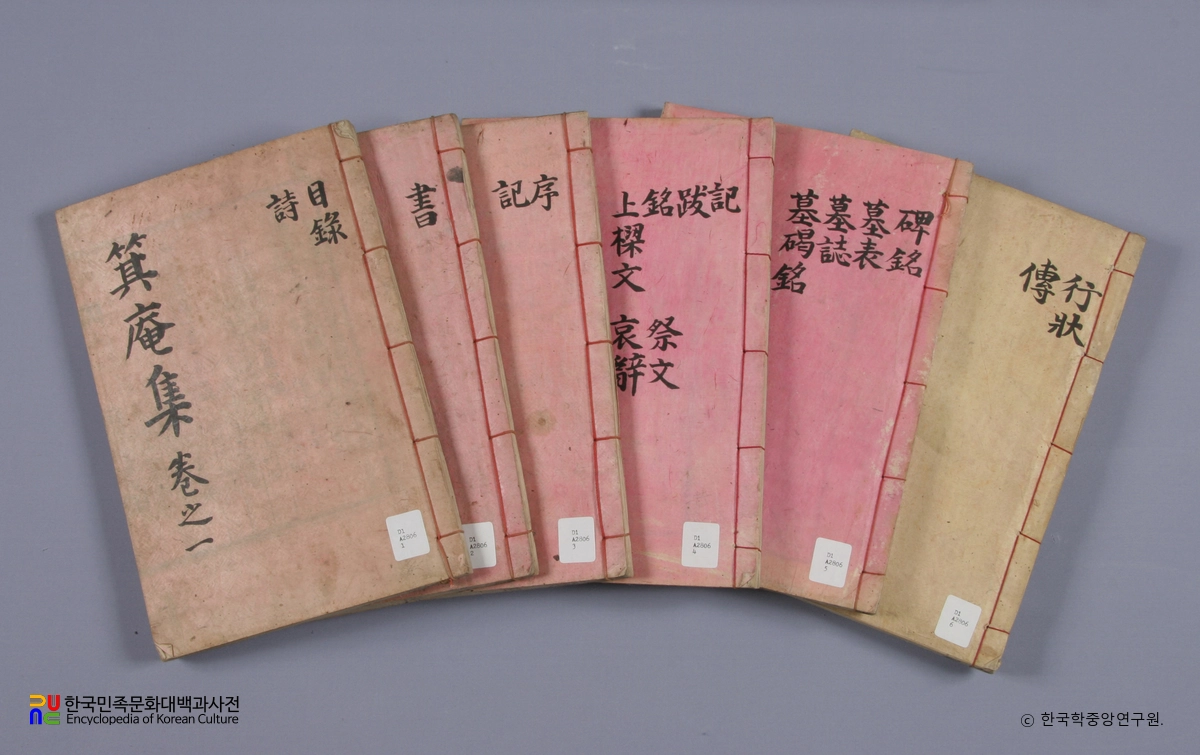 箕庵集 卷之一
目錄
詩
書
序
記
記
跋
銘
上樑文
祭文
哀辭
碑銘
墓表
墓誌
墓碣銘
行狀
傳
D1
A2806
1
D1
A2806
2
D1
A2806
3
D1
A2806
4
D1
A2806
5
D1
A2806
6
한국민족문화대백과사전
Encyclopedia of Korean Culture
© 한국학중앙연구원.